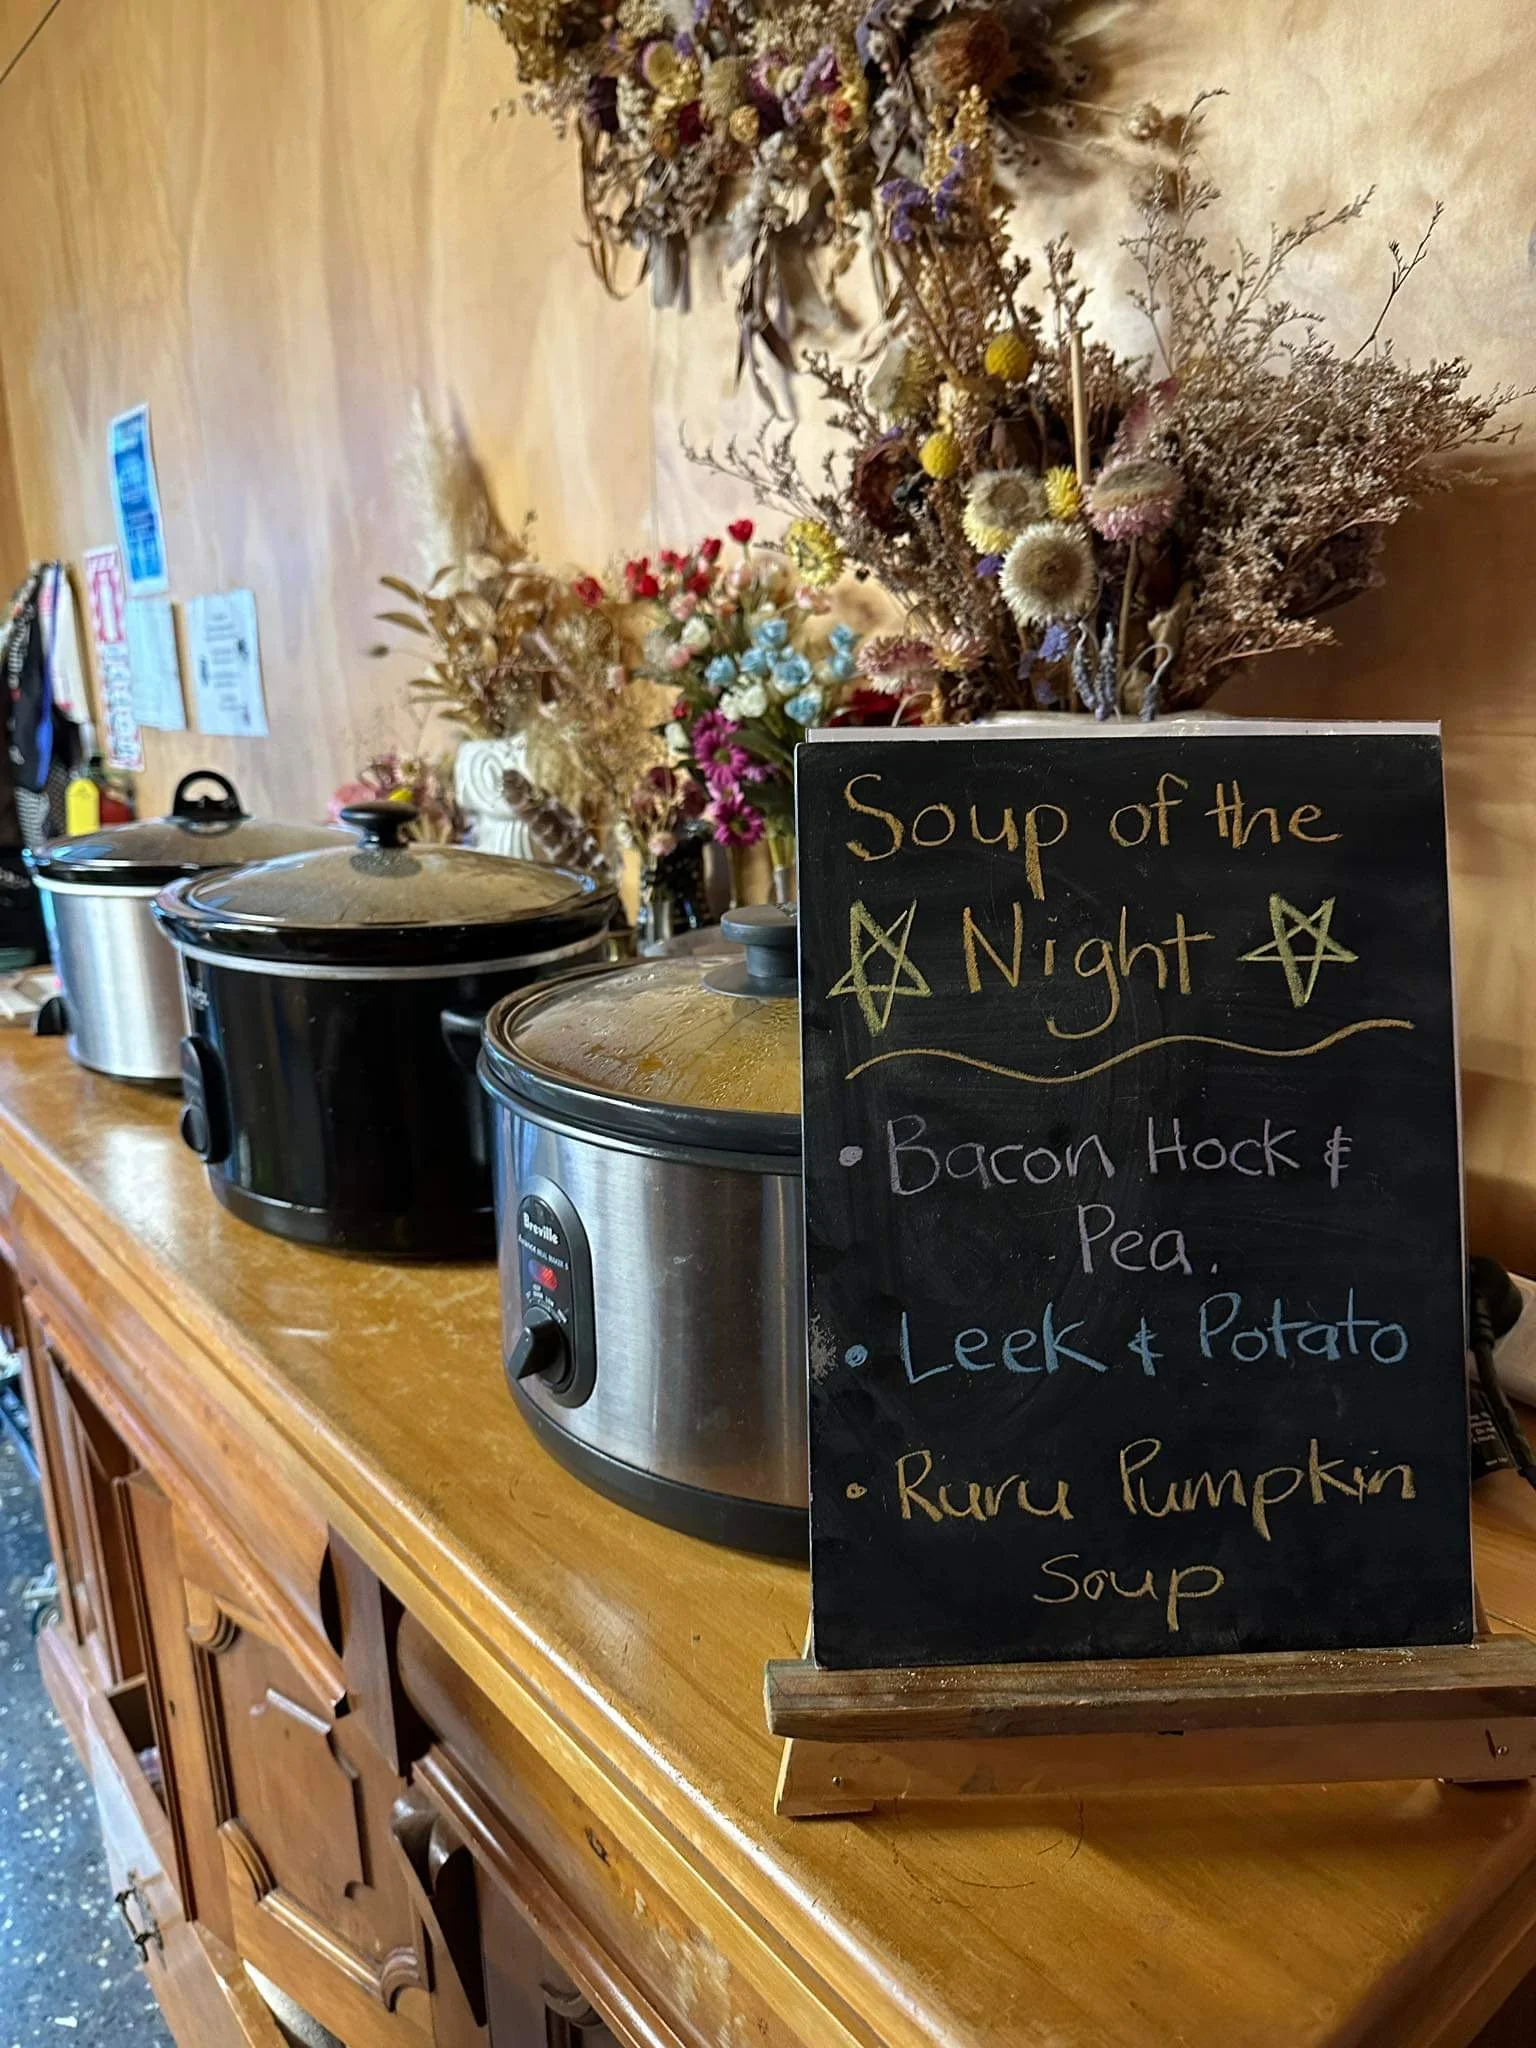 Soup of the
Night
• Bacon Hock &
Pea.
• Leek & Potato
• Ruru Pumpkin
Soup
Breville